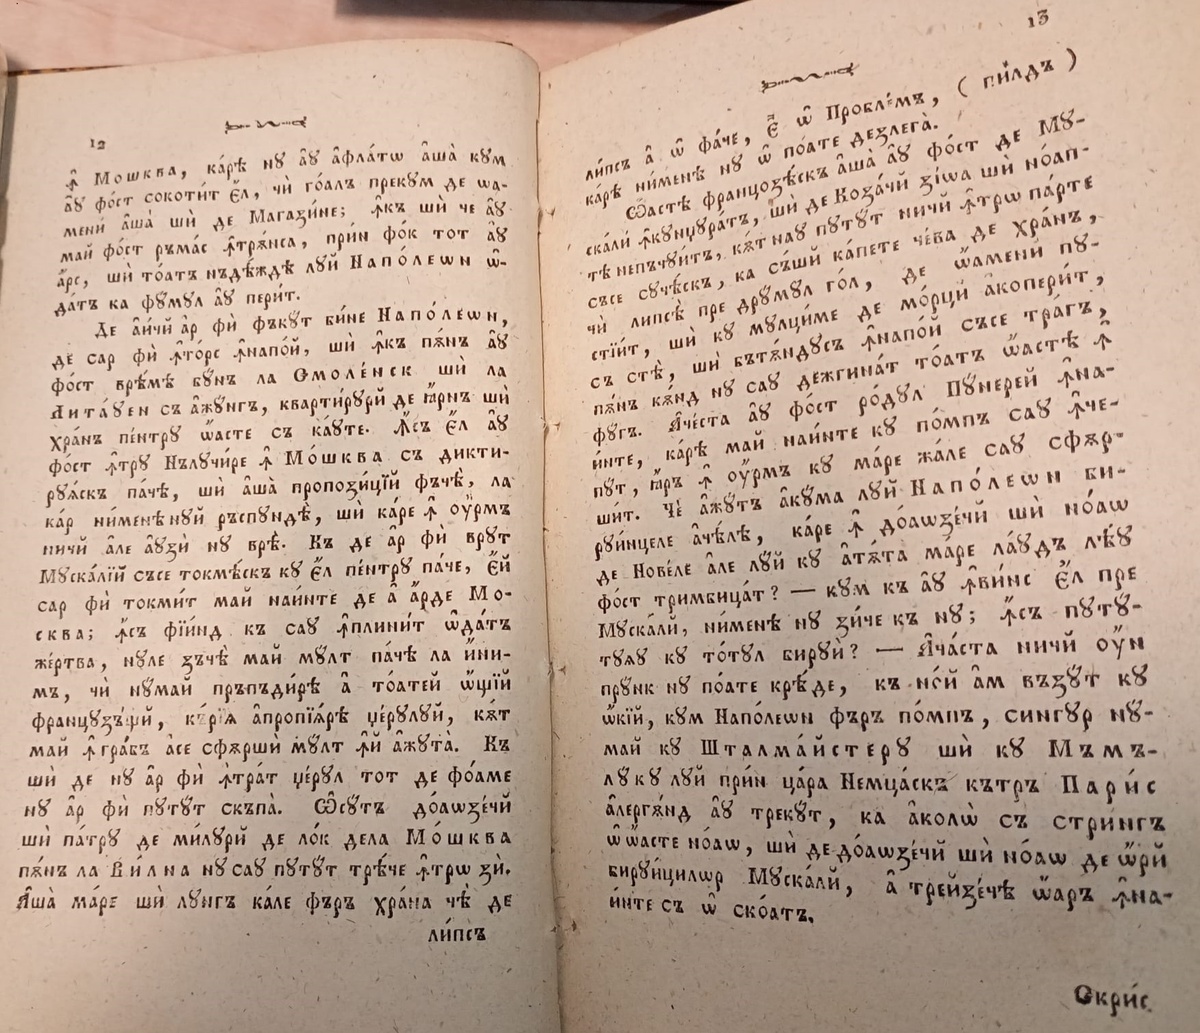 12
ꙟ҆ Мошква, ка́рѣ нꙋ а҆ꙋ а҆фла́тѡ а҆ша̀ кꙋм
а҆ꙋ фо́ст сокоти́т є҆л, чѝ го́алъ прекꙋм де ѡа-
мени а҆ша̀ шѝ де Магази́не; ꙟ҆къ шѝ че а҆ꙋ
май фо́ст рѣма́с ꙟ҆трѫ́нса, при́н фо́к тот а҆ꙋ
а҆́рс, шѝ то́атъ нъдѣ́ждѣ лꙋй Напо́леѡн ѡ҆-
да́тъ ка фꙋ́мꙋл а҆ꙋ пери́т.
Де аи҆чй а҆р фѝ фъкꙋ́т би́не Напо́леѡн,
де сар фѝ ꙟ҆то́рс ꙟ҆напо́й, шѝ ꙟ҆къ пѫ́нъ а҆ꙋ
фо́ст врѣ́мѣ бꙋ́нъ ла Смоле́нск шѝ ла
Лита́ꙋен съ а҆жꙋ́нгъ, квартирꙋрй де ꙗ҆́рнъ шѝ
хра́нъ пе́нтрꙋ ѡ҆́асте съ ка́ꙋте. Ꙟ҆съ є҆́л а҆ꙋ
фо́ст ꙟ҆трꙋ Нълꙋчи́ре ꙟ҆ Мо́шква съ дикти-
рꙋѧ́скъ па́че, шѝ а҆ша̀ пропози́цїй фъчѣ̀, ла
ка́р ни́менѣ нꙋй ръспꙋндѣ̀, шѝ ка́ре ꙟ҆ ѹ҆рмъ
ничй а҆ле а҆ꙋзѝ нꙋ врѣ̀. Къ де а҆р фѝ врꙋ́т
Мꙋска́лїй съсе токмѣ́скъ кꙋ є҆́л пе́нтрꙋ па́че, є҆́й
сар фѝ токми́т май наи́нте де а҆̀ а҆́рде Мо-
сква; ꙟ҆съ фїи́нд къ саꙋ ꙟ҆плини́т ѡ҆да́тъ
же́ртва, нꙋле зъчѣ̀ май мꙋ́лт па́че ла и҆ни-
мъ, чѝ нꙋмай пръпъди́рѣ а҆̀ то́атей ѡ҆щїй
францꙋзѣщй, къ́рїѧ а҆пропїѧ́рѣ џе́рꙋлꙋй, кѫт
май ꙟ҆гра́бъ а҆се сфѫршѝ мꙋ́лт ꙟ҆й а҆жꙋта̀. Къ
шѝ де нꙋ а҆р фѝ ꙟ҆тра́т џе́рꙋл тот де фо́аме
нꙋ а҆р фѝ пꙋтꙋ́т скъпа̀. Ѡ҆сꙋ́тъ до́аѡзе́чй
шѝ па́трꙋ де милꙋрй де ло́к дела Мо́шква
пѫ́нъ ла Ви́лна нꙋ саꙋ пꙋтꙋ́т трѣ́че ꙟ҆трѡ зѝ.
А҆ша̀ ма́ре шѝ лꙋнгъ ка́ле фъръ хра́на чѣ̀ де
ли́псъ
13
ли́псъ а҆̀ ѡ҆̀ фа́че, є҆́ ѡ҆̀ Пробле́мъ, ( пи́лдъ )
ка́рѣ ни́менѣ нꙋ ѡ҆̀ по́ате дезлега̀.
Ѡ҆астѣ францозѣ́скъ а҆ша̀ а҆ꙋ фо́ст де Мꙋ-
ска́лй ꙟ҆кꙋнџꙋра́тъ, шѝ де Коза́чй зі́ѡа шѝ но́ап-
тѣ непъчꙋи́тъ, кѫт наꙋ пꙋтꙋ́т ничй ꙟ҆трѡ па́рте
съсе сꙋчѣ́скъ, ка съшй ка́пете че́ва де хра́нъ,
чѝ липсѣ̀ пре дрꙋ́мꙋл го́л, де ѡ҆́амени пꙋ-
стїи́т, шѝ кꙋ мꙋлци́ме де мо́рцй а҆копери́т,
съ стѣ̀, шѝ бътѫ́ндꙋсъ ꙟ҆напо́й съсе тра́гъ,
пѫ́нъ кѫ́нд нꙋ саꙋ дежгина́т то́атъ ѡ҆́астѣ ꙟ҆
фꙋгъ. А҆че́ста а҆ꙋ фо́ст ро́дꙋл Пꙋ́нерей ꙟ҆на-
и́нте, ка́рѣ май наи́нте кꙋ по́мпъ саꙋ ꙟ҆че-
пꙋт, ꙗ҆ръ ꙟ҆ ѹ҆́рмъ кꙋ ма́ре жа́ле саꙋ сфѫр-
ши́т. Чѐ а҆жꙋ́тъ а҆кꙋ́ма лꙋ́й Напо́леѡн би-
рꙋи́нцеле а҆че́лѣ, ка́ре ꙟ҆ до́аѡзе́чй шѝ но́аѡ
де Нове́ле а҆ле лꙋй кꙋ а҆тѫ́та ма́ре ла́ꙋдъ лѣ́ꙋ
фо́ст тримбица́т? — кꙋм къ а҆ꙋ ꙟ҆ви́нс є҆́л пре
Мꙋска́лй, ни́менѣ нꙋ зи́че къ нꙋ; ꙟ҆съ пꙋтꙋ-
тꙋѧꙋ кꙋ то́тꙋл бирꙋй? — А҆ча́ста ничй ѹ҆н
прꙋнк нꙋ по́ате крѣ́де, къ но́й а҆м възꙋт кꙋ
ѡ҆кїй, кꙋм Напо́леѡн фъръ по́мпъ, сингꙋр нꙋ-
май кꙋ Шталма́йстерꙋ шѝ кꙋ Мъмъ-
лꙋкꙋ лꙋй при́н ца́ра Немца́скъ кътръ Пари́с
а҆лергѫ́нд а҆ꙋ трекꙋт, ка а҆колѡ̀ съ стри́нгъ
ѡ҆̀ ѡ҆́асте но́аѡ, шѝ де до́аѡзе́чй шѝ но́аѡ де ѡ҆рй
бирꙋи́цилѡр Мꙋска́лй, а҆̀ трейзе́чѣ ѡ҆́аръ ꙟ҆на-
и́нте съ ѡ҆̀ ско́атъ.
Скри́с